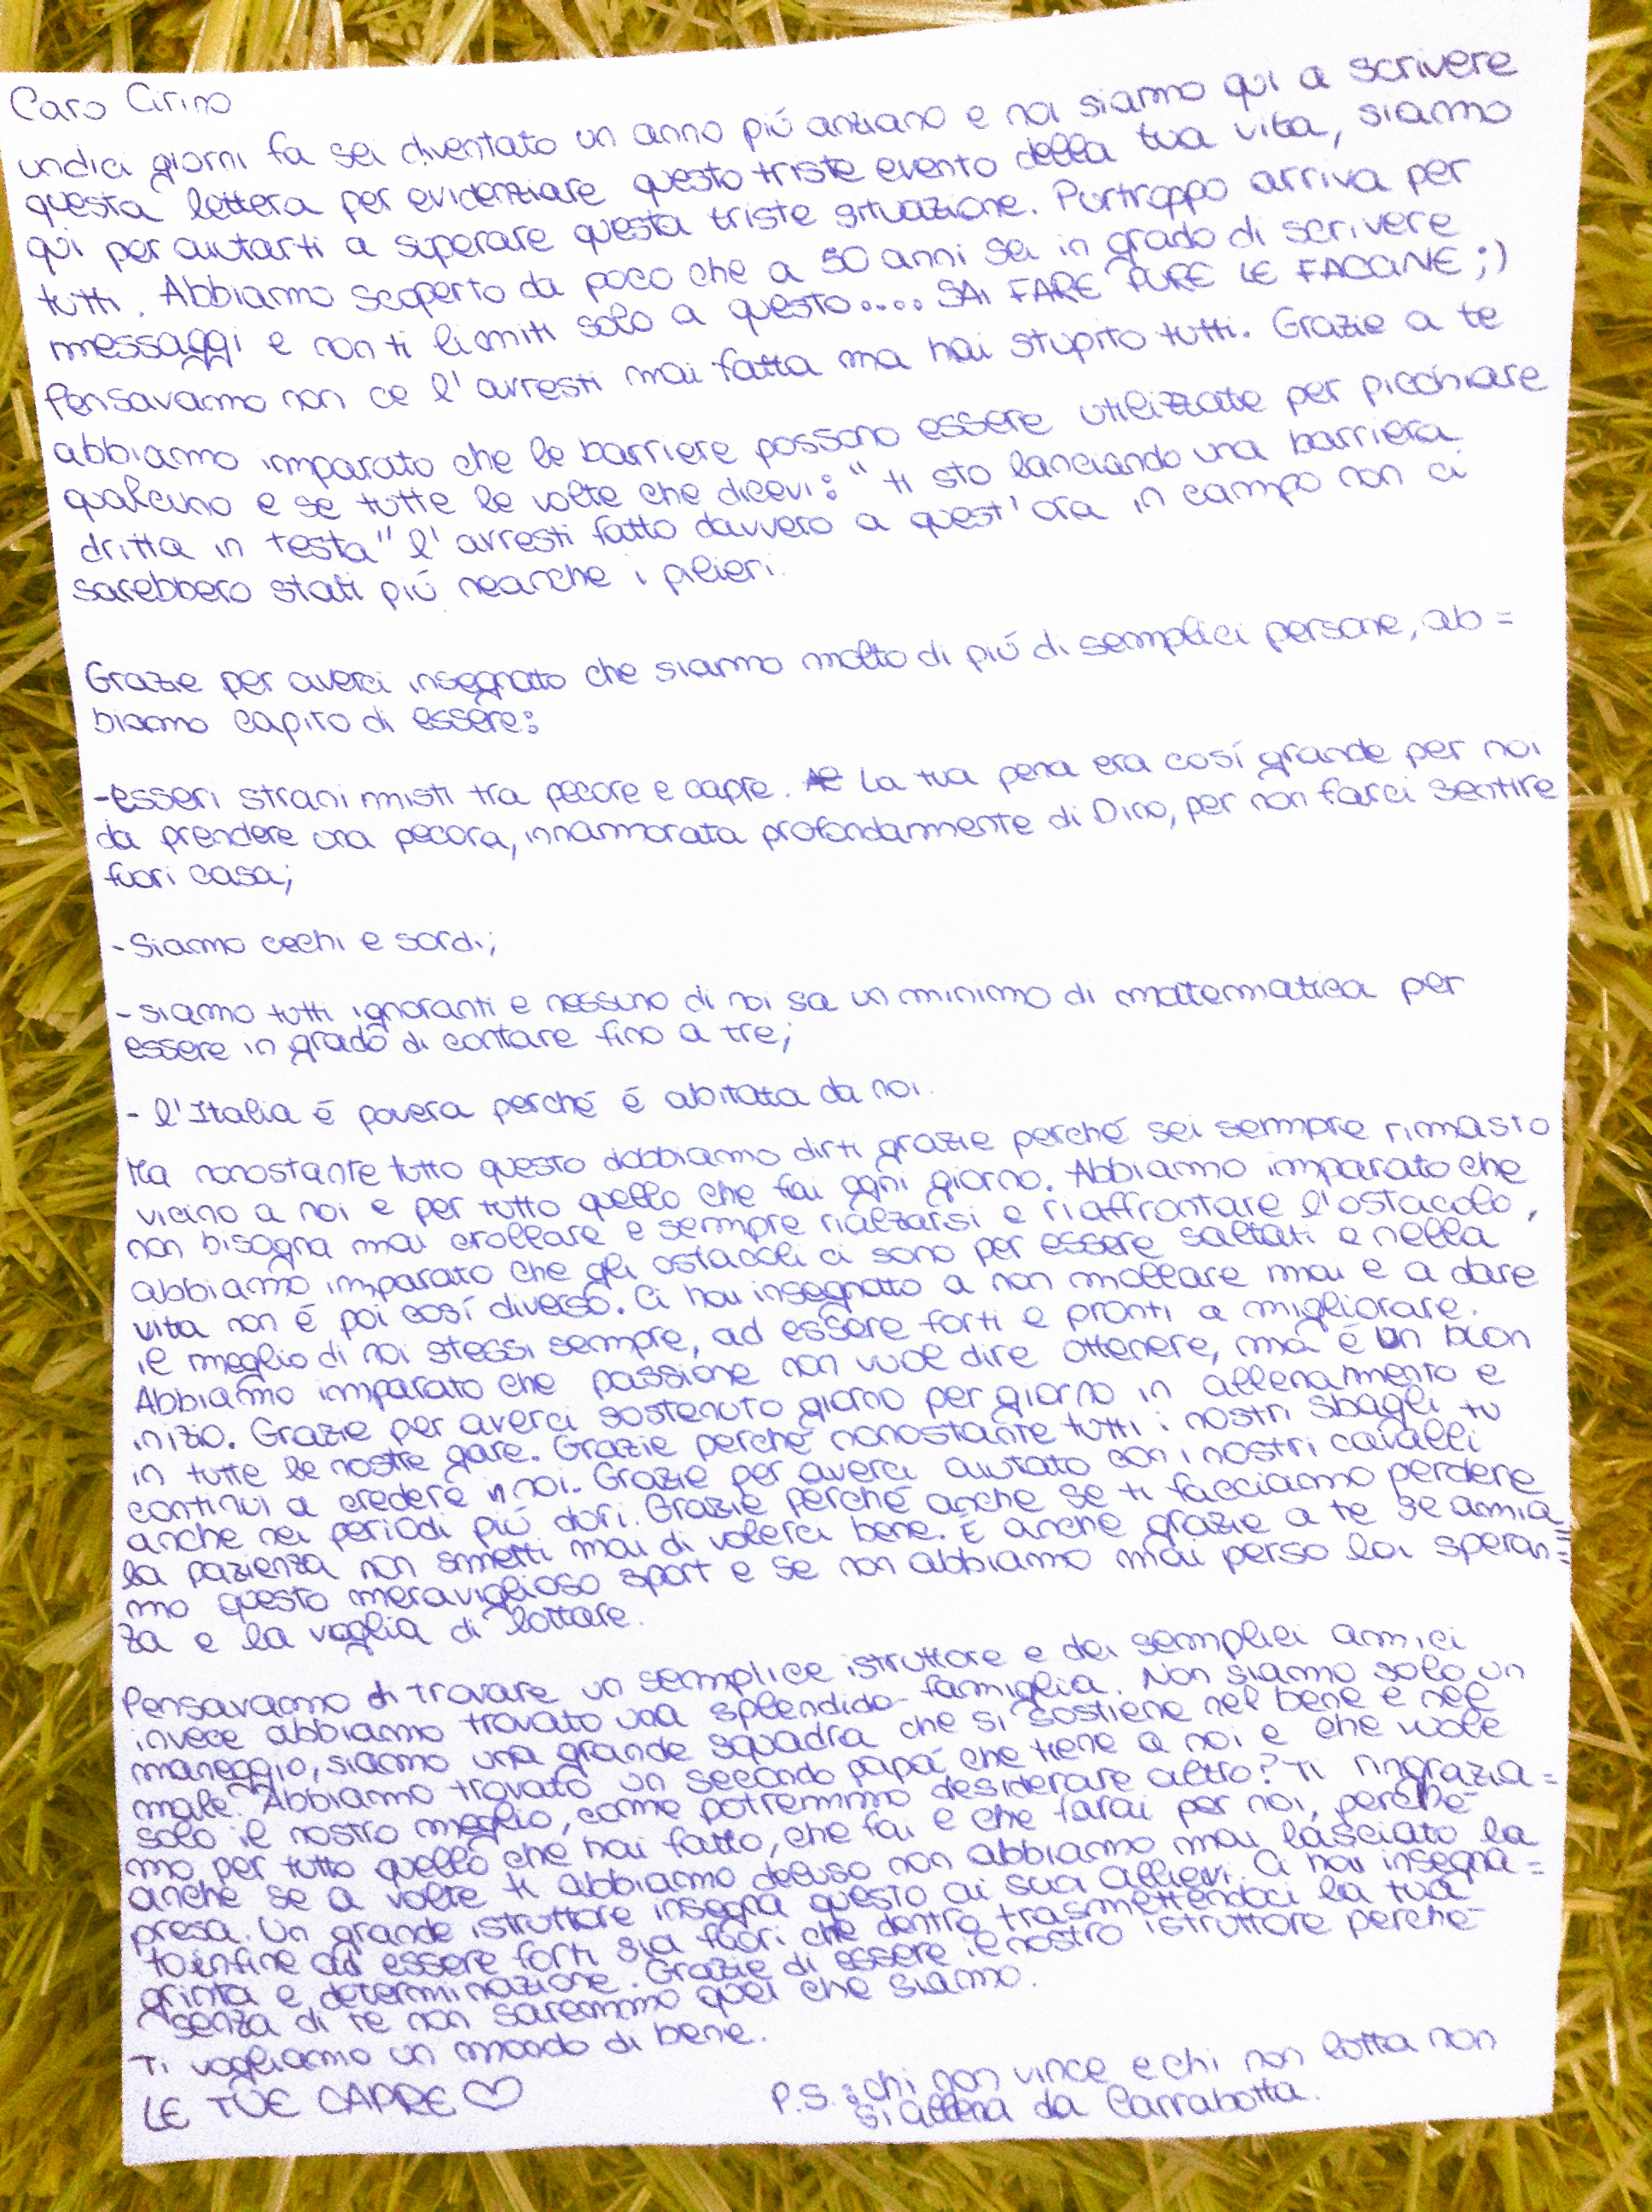 Caro Cirino
undici giorni fa sei diventato un anno piú anziano e noi siamo qui a scrivere
questa lettera per evidenziare questo triste evento della tua vita, siamo
qui per aiutarti a superare questa triste situazione. Purtroppo arriva per
tutti. Abbiamo scoperto da poco che a 50 anni sei in grado di scrivere
messaggi e non ti limiti solo a questo.... SAI FARE PURE LE FACCINE ;)
Pensavamo non ce l'avresti mai fatta ma hai stupito tutti. Grazie a te
abbiamo imparato che le barriere possono essere utilizzate per picchiare
qualcuno e se tutte le volte che dicevi: "ti sto lanciando una barriera
dritta in testa" l'avresti fatto davvero a quest'ora in campo non ci
sarebbero stati piú neanche i pilieri.
Grazie per averci insegnato che siamo molto di piú di semplici persone, ab=
biamo capito di essere:
-esseri strani misti tra pecore e capre. La tua pena era cosí grande per noi
da prendere una pecora, innamorata profondamente di Dino, per non farci sentire
fuori casa;
-Siamo cechi e sordi;
-siamo tutti ignoranti e nessuno di noi sa un minimo di matematica per
essere in grado di contare fino a tre;
- l'Italia é povera perché é abitata da noi.
Ma nonostante tutto questo dobbiamo dirti grazie perché sei sempre rimasto
vicino a noi e per tutto quello che fai ogni giorno. Abbiamo imparato che
non bisogna mai crollare e sempre rialzarsi e riaffrontare l'ostacolo,
abbiamo imparato che gli ostacoli ci sono per essere saltati e nella
vita non é poi cosí diverso. Ci hai insegnato a non mollare mai e a dare
il meglio di noi stessi sempre, ad essere forti e pronti a migliorare.
Abbiamo imparato che passione non vuol dire ottenere, ma é un buon
inizio. Grazie per averci sostenuto giorno per giorno in allenamento e
in tutte le nostre gare. Grazie perché nonostante tutti i nostri sbagli tu
continui a credere in noi. Grazie per averci aiutato con i nostri cavalli
anche nei periodi piú duri. Grazie perché anche se ti facciamo perdere
la pazienza non smetti mai di volerci bene. É anche grazie a te se amia=
mo questo meraviglioso sport e se non abbiamo mai perso la speran=
za e la voglia di lottare.
Pensavamo di trovare un semplice istruttore e dei semplici amici
invece abbiamo trovato una splendida famiglia. Non siamo solo un
maneggio, siamo una grande squadra che si sostiene nel bene e nel
male. Abbiamo trovato un secondo papá che tiene a noi e che vuole
solo il nostro meglio, come potremmo desiderare altro? Ti ringrazia=
mo per tutto quello che hai fatto, che fai e che farai per noi, perché
anche se a volte ti abbiamo deluso non abbiamo mai lasciato la
presa. Un grande istruttore insegna questo ai suoi allievi. Ci hai insegna=
to infine ad essere forti sia fuori che dentro trasmettendoci la tua
grinta e determinazione. Grazie di essere il nostro istruttore perché
senza di te non saremmo quel che siamo.
Ti vogliamo un mondo di bene.
LE TUE CAPRE ♡
P.S.: chi non vince e chi non lotta non
si allena da Carrabotta.